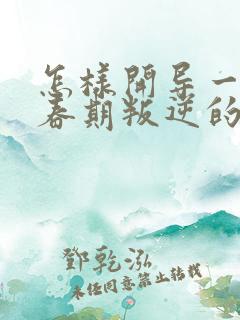 怎样開导一
春期叛逆的
鄧乾泓
未经同意禁止转载